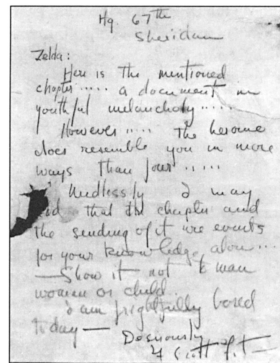 Hq. 67th
Sheridan
Zelda:
Here is the mentioned
chapter..... a document in
youthful melancholy.....
However.... the heroine
does resemble you in more
ways than four.....
Needlessly I may
add that the chapter and
the sending of it are events
for your knowledge alone...
—Show it not to man
woman or child.
I am frightfully bored
today—
Desirously
F Scott Fit